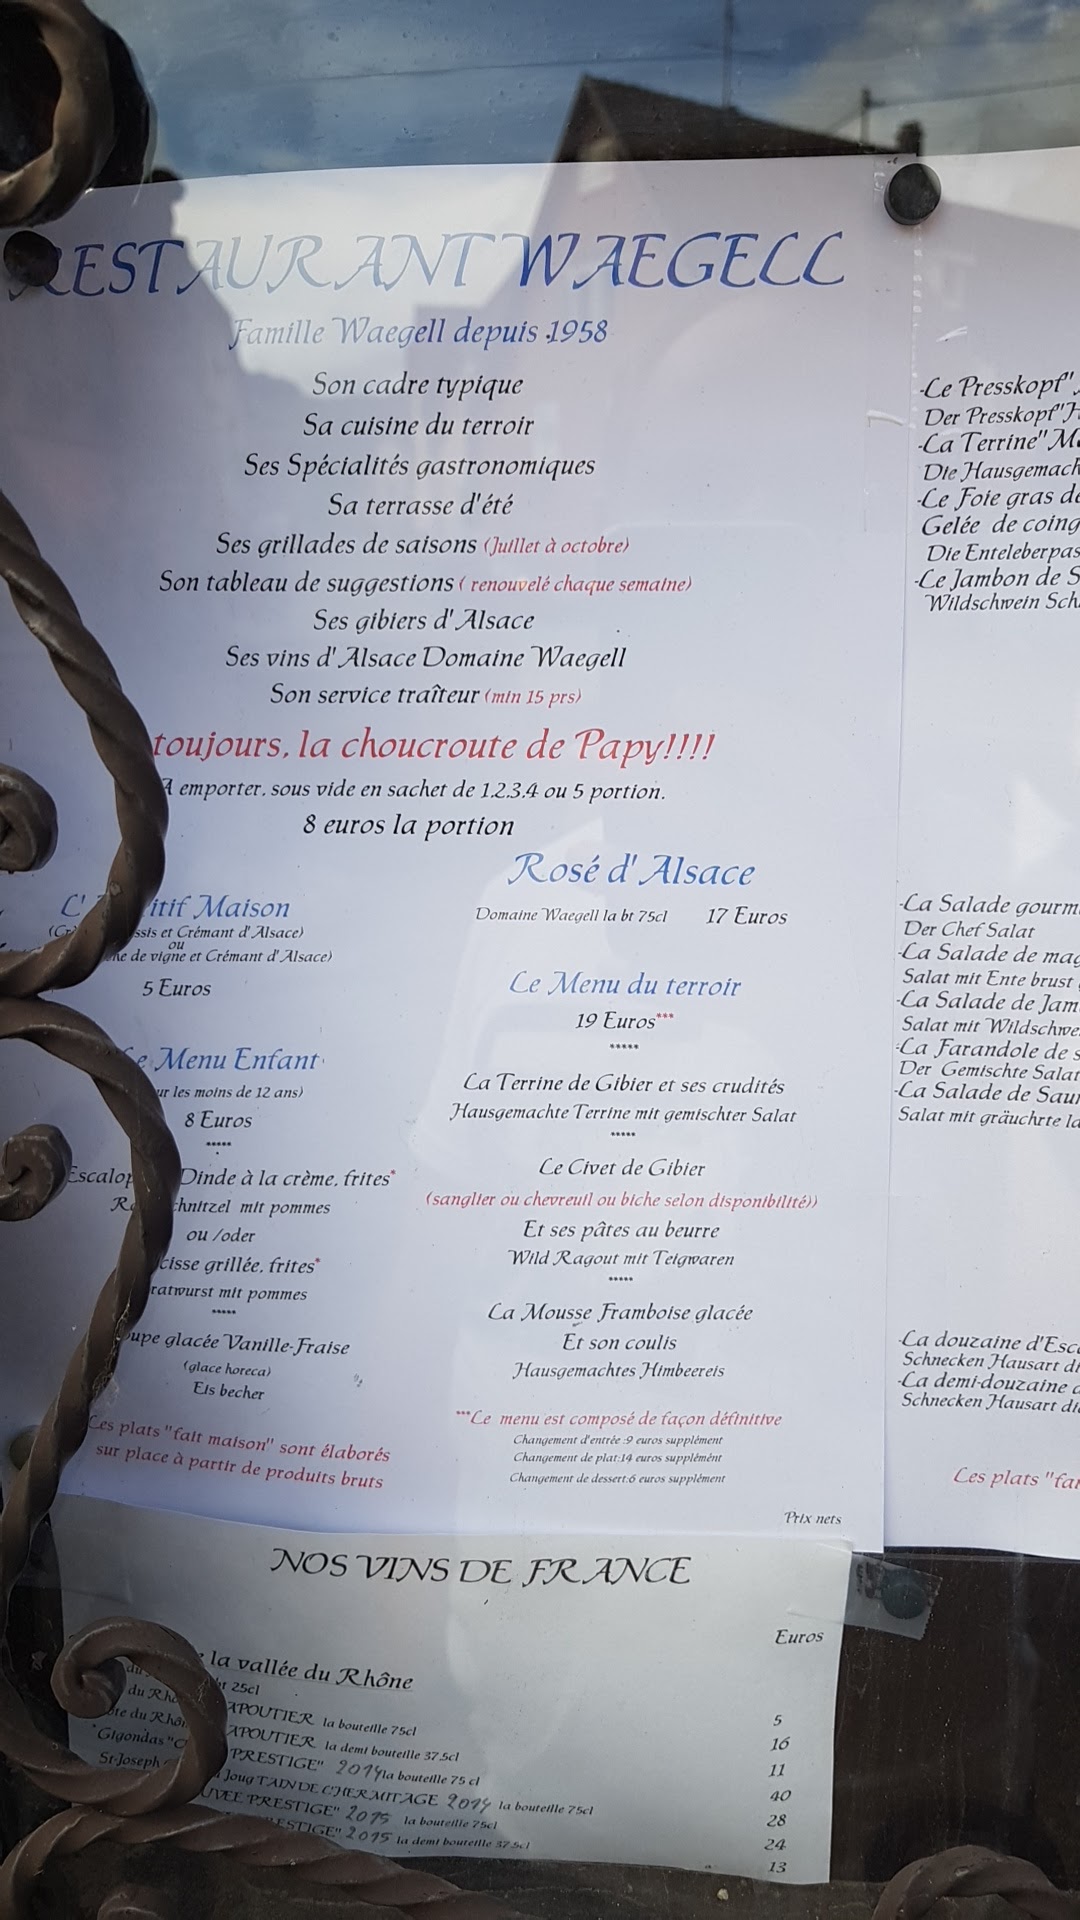 RESTAURANT WAEGELL
Famille Waegell depuis 1958
Son cadre typique
Sa cuisine du terroir
Ses Spécialités gastronomiques
Sa terrasse d'été
Ses grillades de saisons (Juillet à octobre)
Son tableau de suggestions ( renouvelé chaque semaine)
Ses gibiers d'Alsace
Ses vins d'Alsace Domaine Waegell
Son service traîteur (min 15 prs)
toujours, la choucroute de Papy!!!!
A emporter, sous vide en sachet de 1,2,3,4 ou 5 portion.
8 euros la portion
L' Maison
et Crémant d'Alsace)
ou
de vigne et Crémant d'Alsace)
5 Euros
Le Menu Enfant
les moins de 12 ans)
8 Euros
*****
Dinde à la crème, frites*
mit pommes
ou /oder
grillée, frites*
mit pommes
*****
glacée Vanille-Fraise
(glace horeca)
Eis becher
Les plats "fait maison" sont élaborés
sur place à partir de produits bruts
Rosé d'Alsace
Domaine Waegell la bt 75cl 17 Euros
Le Menu du terroir
19 Euros***
*****
La Terrine de Gibier et ses crudités
Hausgemachte Terrine mit gemischter Salat
*****
Le Civet de Gibier
(sanglier ou chevreuil ou biche selon disponibilité))
Et ses pâtes au beurre
Wild Ragout mit Teigwaren
*****
La Mousse Framboise glacée
Et son coulis
Hausgemachtes Himbeereis
***Le menu est composé de façon définitive
Changement d'entrée :9 euros supplément
Changement de plat:14 euros supplémént
Changement de dessert:6 euros supplément
Prix nets
-Le Presskopf"
Der Presskopf"
-La Terrine"
Die
-Le Foie gras
Gelée de
Die
-Le Jambon de
Wildschwein
-La Salade
Der Chef Salat
-La Salade de
Salat mit Ente brust
-La Salade de
Salat mit
-La Farandole de
Der Gemischte Salat
-La Salade de
Salat mit gräuchrte
-La douzaine
Schnecken Hausart
-La demi-douzaine
Schnecken Hausart
Les plats
NOS VINS DE FRANCE
Euros
la vallée du Rhône
25cl 5
du la bouteille 75cl 16
du la demi bouteille 37.5cl 11
"Gigondas PRESTIGE" 2014 la bouteille 75 cl 40
St-Joseph TAIN DE L'HERMITAGE 2014 la bouteille 75cl 28
PRESTIGE" 2015 la bouteille 75cl 24
2015 la demi bouteille 37.5cl 13